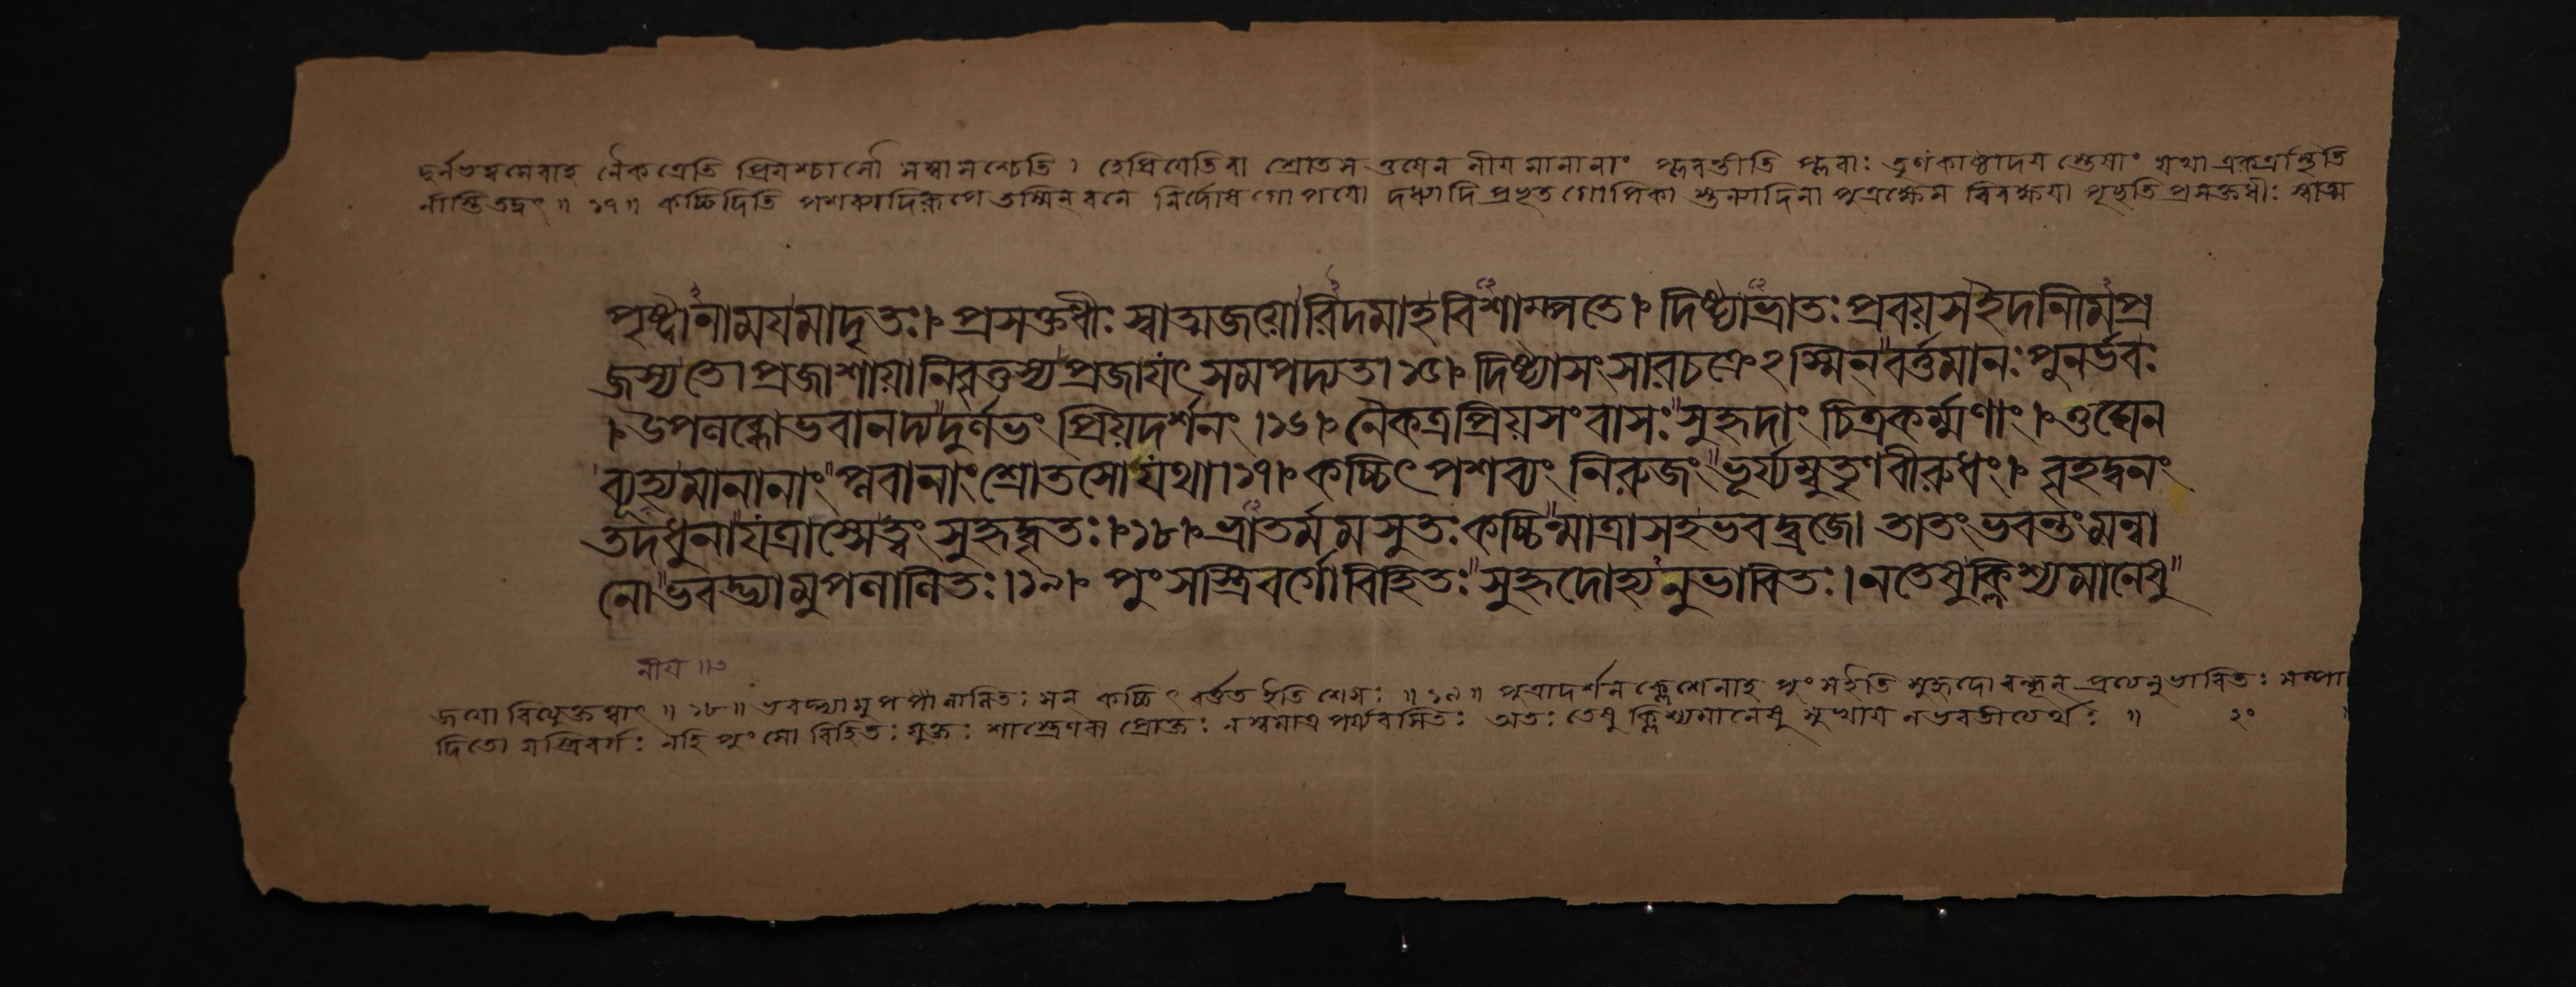 দুর্নভত্বমেবাহ নৈকত্রেতি প্রিয়শ্চাসৌ সম্বাসশ্চেতি । হেপ্রিয়েতিবা শ্রোতস ওঘেন নীয়মানানাং প্লবন্তীতি প্লবাঃ তৃণকাষ্ঠাদয় স্তেষাং যথা একত্রস্থিতি
র্নাস্তিতদ্বৎ ॥ ১৭ ॥ কচ্চিদিতি পশব্যাদিরূপে তস্মিন্ বনে নির্দোষ গোপয়ো দধ্যাদি প্রভূত গোপিকা স্তন্যাদিনা পুত্রক্ষেম বিবক্ষয়া পৃচ্ছতি প্রসক্তধীঃ স্বাত্ম
পৃষ্ট্বানাময়মাদৃতঃ। প্রসক্তধীঃ স্বাত্মজয়োরিদমাহবিশাম্পতে। দিষ্ট্যাভ্রাতঃ প্রবয়সইদানীমপ্র
জস্যতে। প্রজাশায়ানিবৃত্তস্যপ্রজাযৎ সমপদ্যত। ১৫। দিষ্ট্যাসংসারচক্রেঽস্মিন্ বর্ত্তমানঃ পুনর্ভবঃ
। উপলব্ধোভবানদ্যদুর্লভং প্রিয়দর্শনং । ১৬। নৈকত্রপ্রিয়সংবাসঃ সুহৃদাং চিত্রকর্ম্মণাং । ওঘেন
ব্যূহ্যমানানাং প্লবানাং শ্রোতসোযথা। ১৭। কচ্চিৎ পশব্যং নিরুজং ভূর্য্যম্বুতৃণবীরুধং। বৃহদ্বনং
তদধুনাযত্রাস্সেত্বং সুহৃদ্বৃতঃ। ১৮। ভ্রাতর্মমসুতঃ কচ্চিন্মাত্রাসহভবদ্ব্রজে। তাতং ভবন্তং মন্বা
নো ভবদ্ভ্যামুপলালিতঃ। ১৯। পুংসস্ত্রিবর্গোবিহিতঃ সুহৃদোহ্যনুভাবিতঃ। নতেষুক্লিশ্যমানেষু
জয়ো বিযুক্তত্বাৎ ॥ ১৮ ॥ ভবদ্ভ্যামুপলালিতঃ সন্ কচ্চিৎ বর্ত্তত ইতি শেষঃ ॥ ১৯ ॥ পুত্রাদর্শন ক্লেশেনাহ পুংসইতি সুহৃদো বন্ধূন্ প্রত্যেনুভাবিতঃ সম্পা
দিতো যস্ত্রিবর্গঃ সহি পুংসো বিহিতঃ যুক্তঃ শাস্ত্রেণবা প্রোক্তঃ নস্বমাত্র পর্য্যবসিতঃ অতঃ তেষু ক্লিশ্যমানেষু সুখায় নভবতীত্যর্থঃ ॥ ২০